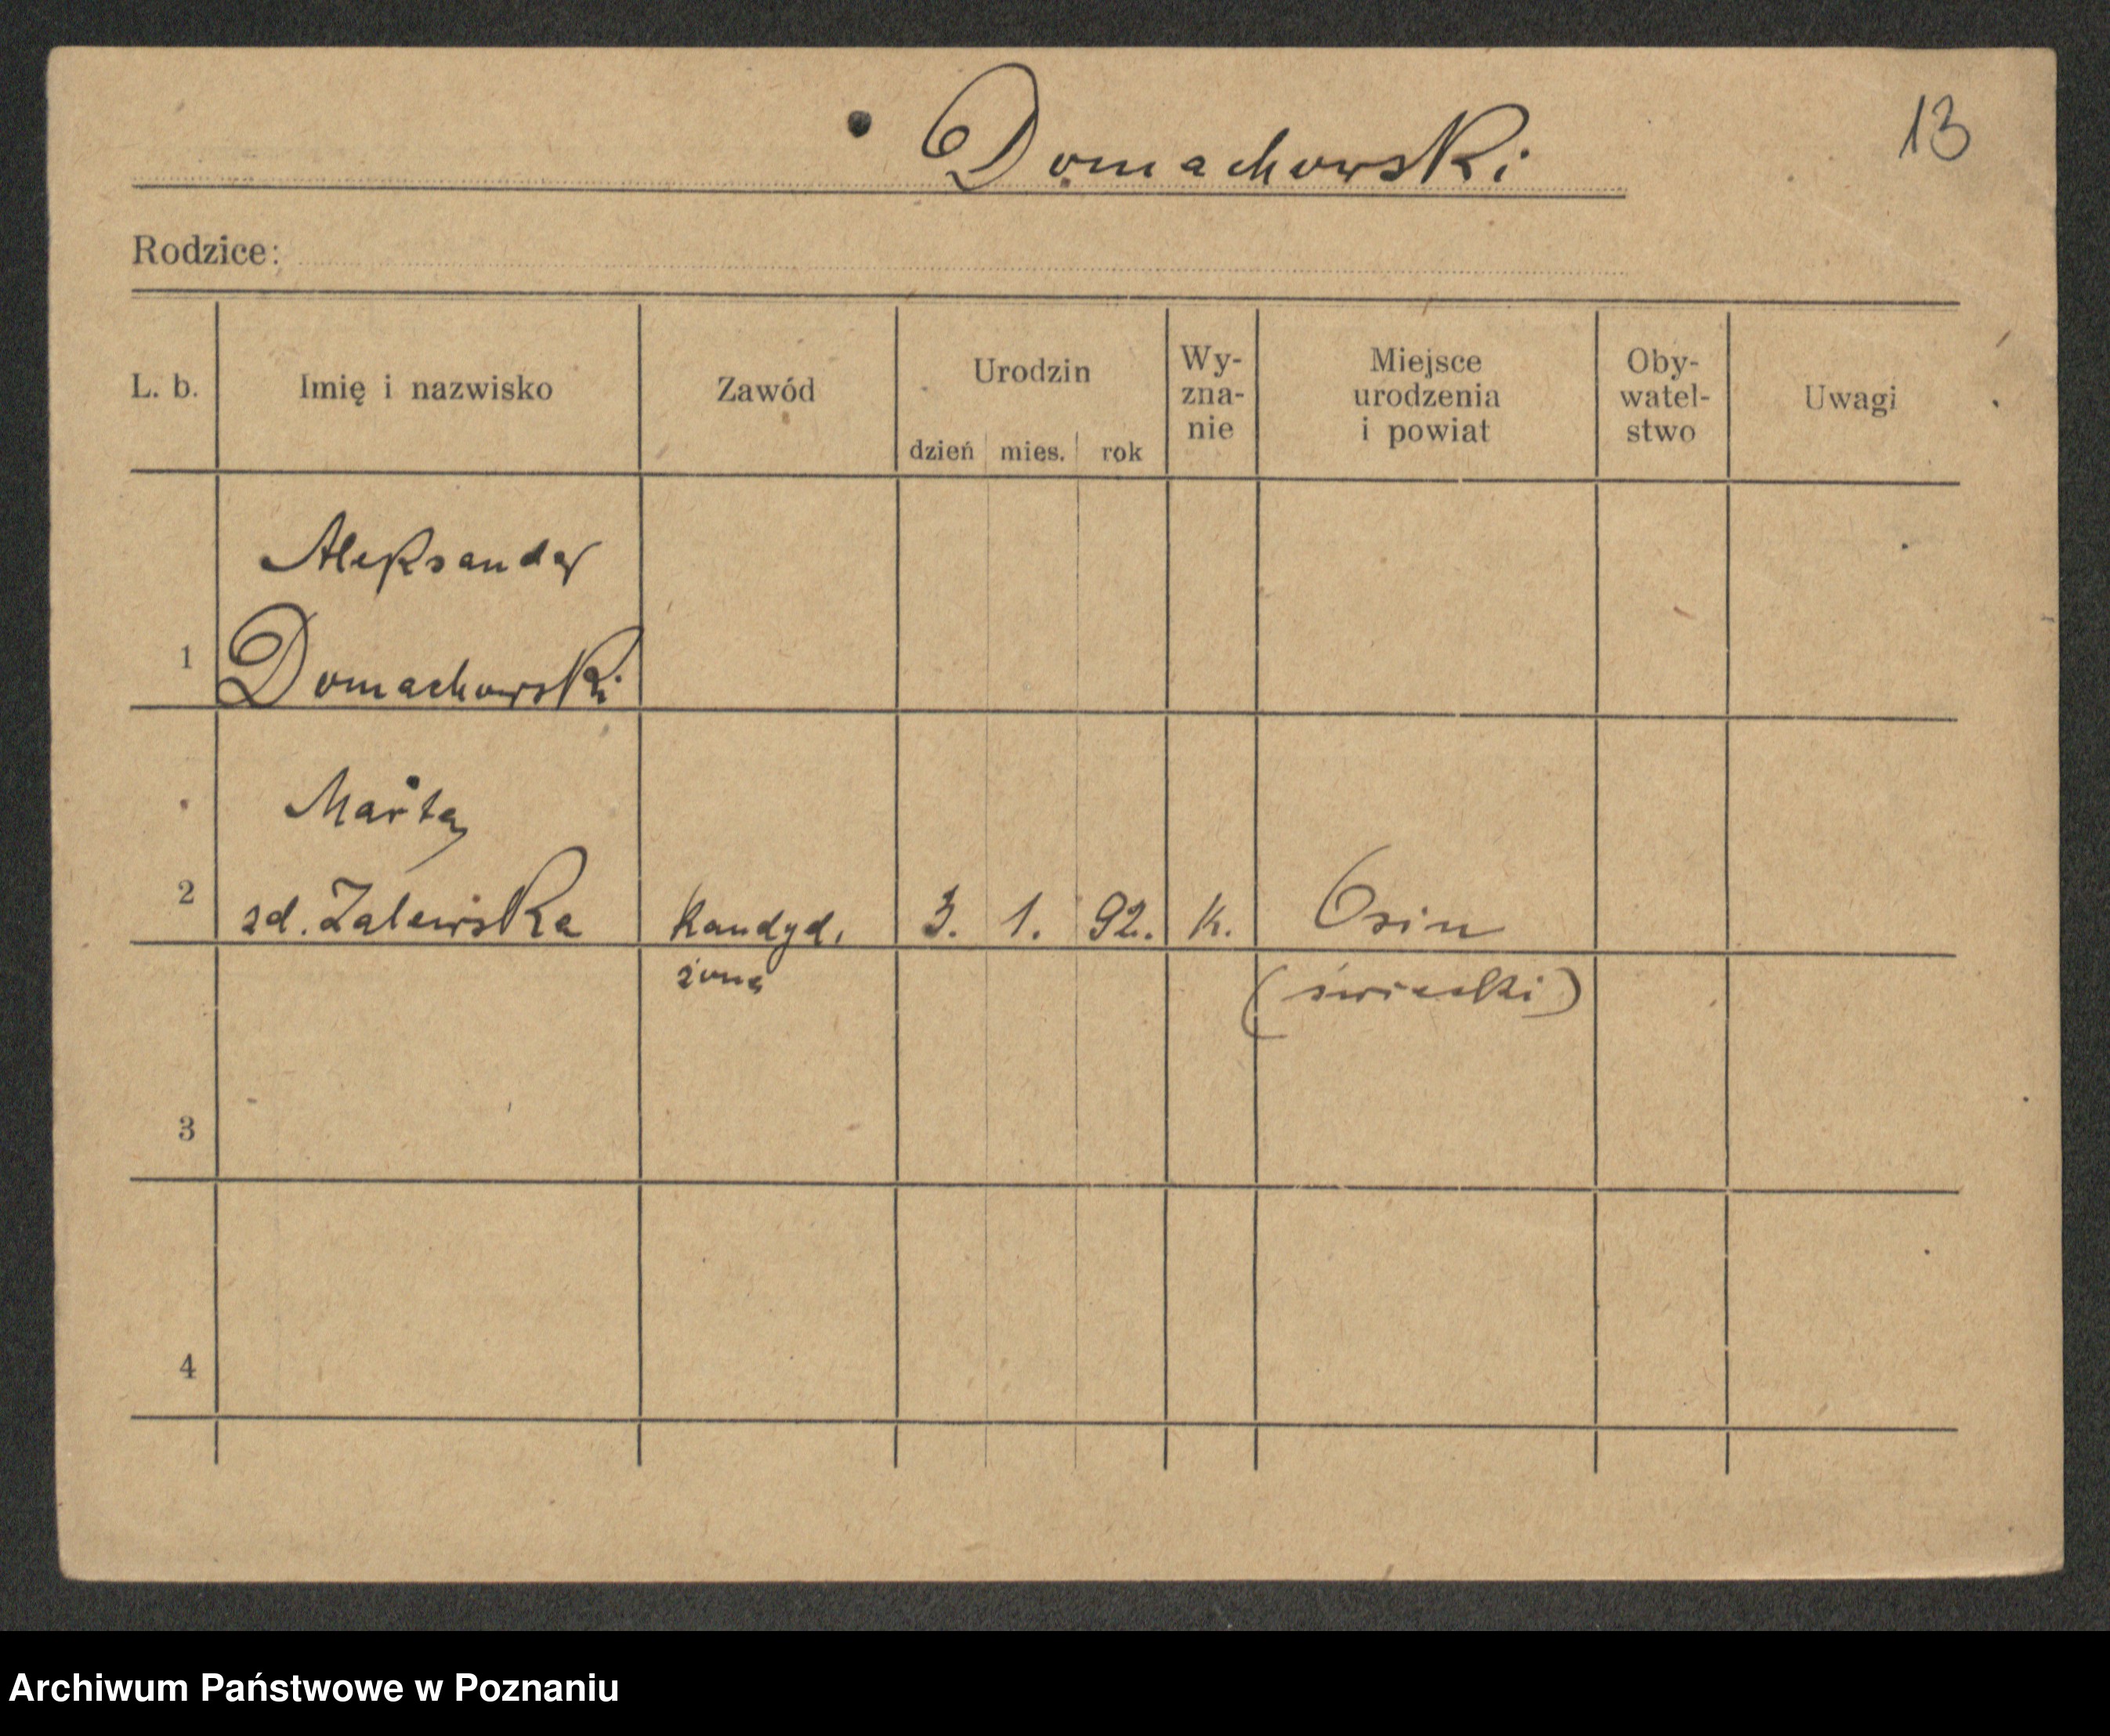 Domachowski
13
Rodzice:
L. b.
Imię i nazwisko
Zawód
Urodzin
dzień mies. rok
Wy-
zna-
nie
Miejsce
urodzenia
i powiat
Oby-
watel-
stwo
Uwagi
Aleksander
1 Domachowski
Marta
2 zd. Zalewska kandyd. 3. 1. 92. K. Osin
żona (świecki)
3
4
Archiwum Państwowe w Poznaniu